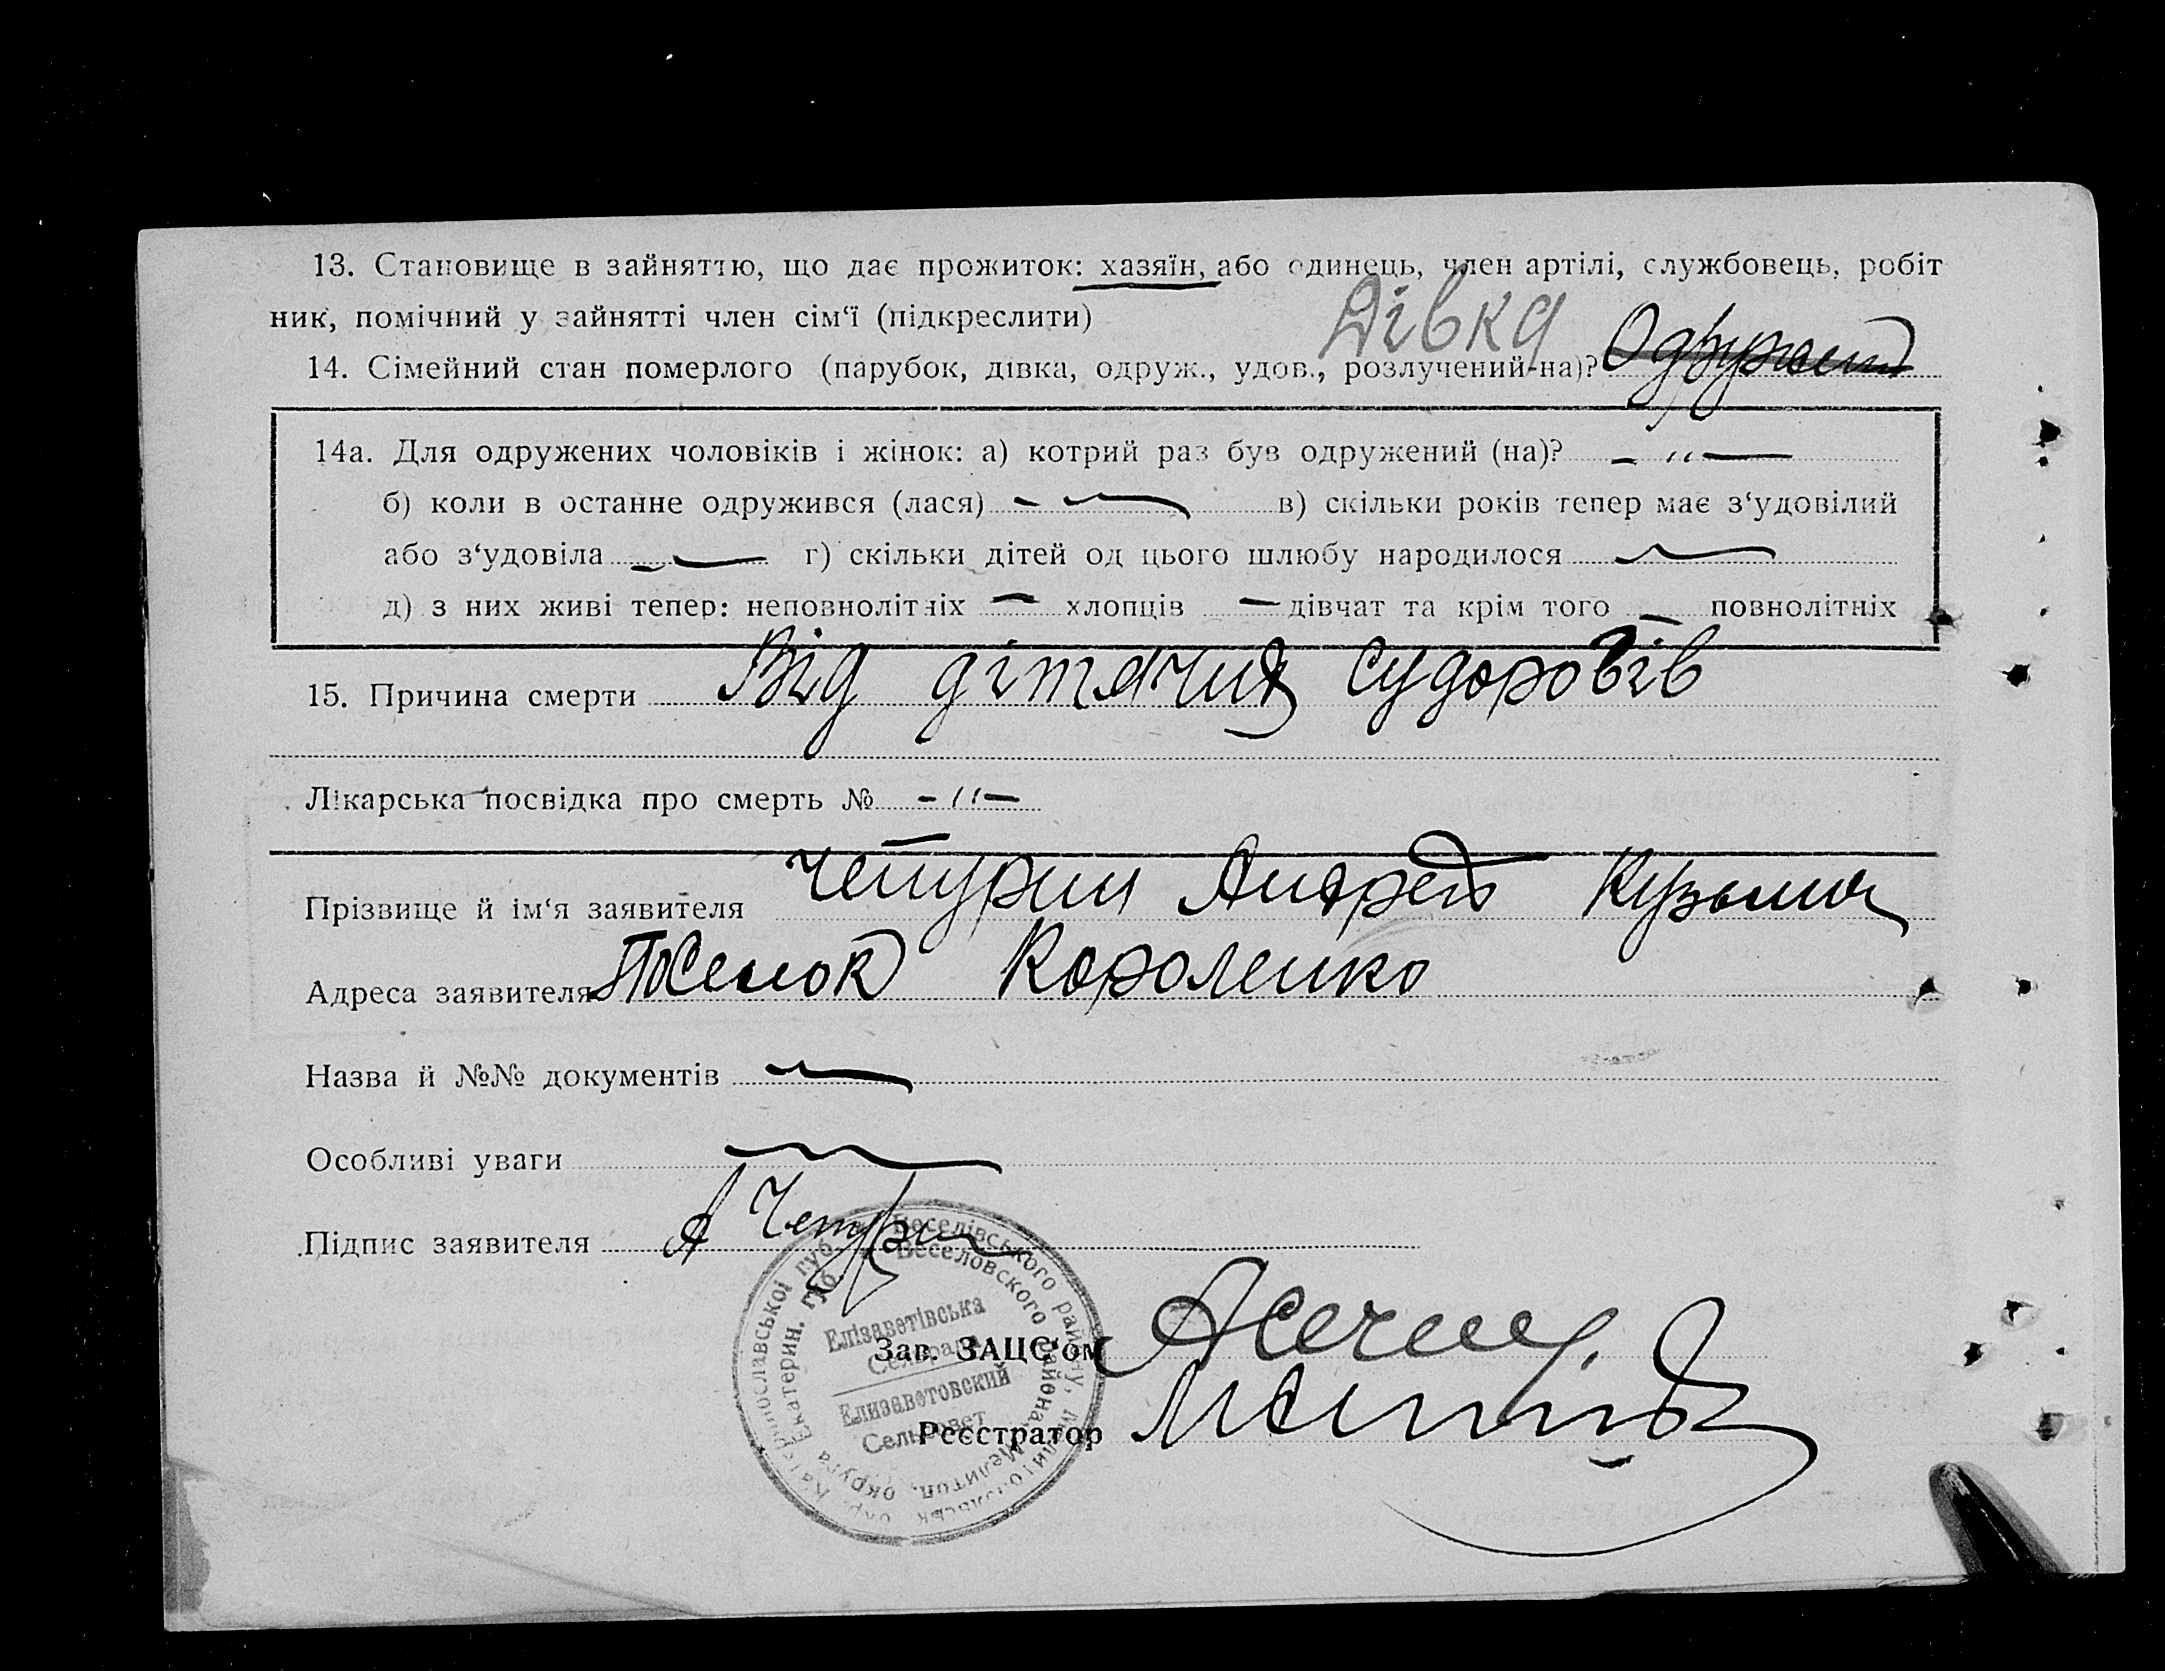 13. Становище в зайняттю, що дає прожиток: хазяїн, або одинець, член артілі, службовець, робіт
ник, помічний у зайнятті член сім‘ї (підкреслити)
Дівка
14. Сімейний стан померлого (парубок, дівка, одруж., удов., розлучений-на)?
14а. Для одружених чоловіків і жінок: а) котрий раз був одружений (на)? - " -
б) коли в останне одружився (лася) - в) скільки років тепер має з‘удовілий
або з‘удовіла - г) скільки дітей од цього шлюбу народилося -
д) з них живі тепер: неповнолітніх - хлопців - дівчат та крім того - повнолітніх
15. Причина смерти Від дітячих судоровів
Лікарська посвідка про смерть № - " -
Прізвище й ім‘я заявителя Чепурин Андрей Кузьмич
Адреса заявителя Поселок Короленко
Назва й №№ документів -
Особливі уваги -
Підпис заявителя А Чепурин
Веселівського району, Мелітопільськ. окр. Катеринославської губ.
Веселовского района, Мелитоп. округа Екатерин. губ.
Елізаветівська
Сельрада
Елизаветовский
Сельсовет
Зав. ЗАЦС‘ом
Реєстратор